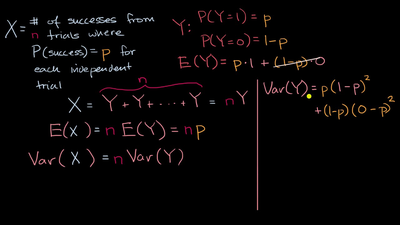 X = # of successes from
n trials where
P(success) = p for
each independent
trial
Y: P(Y=1) = p
P(Y=0) = 1-p
E(Y) = p · 1 + (1-p) · 0
n
X = Y + Y + · · · + Y = nY
E(X) = n E(Y) = np
Var(X) = n Var(Y)
Var(Y) = p(1-p)²
+ (1-p)(0-p)²